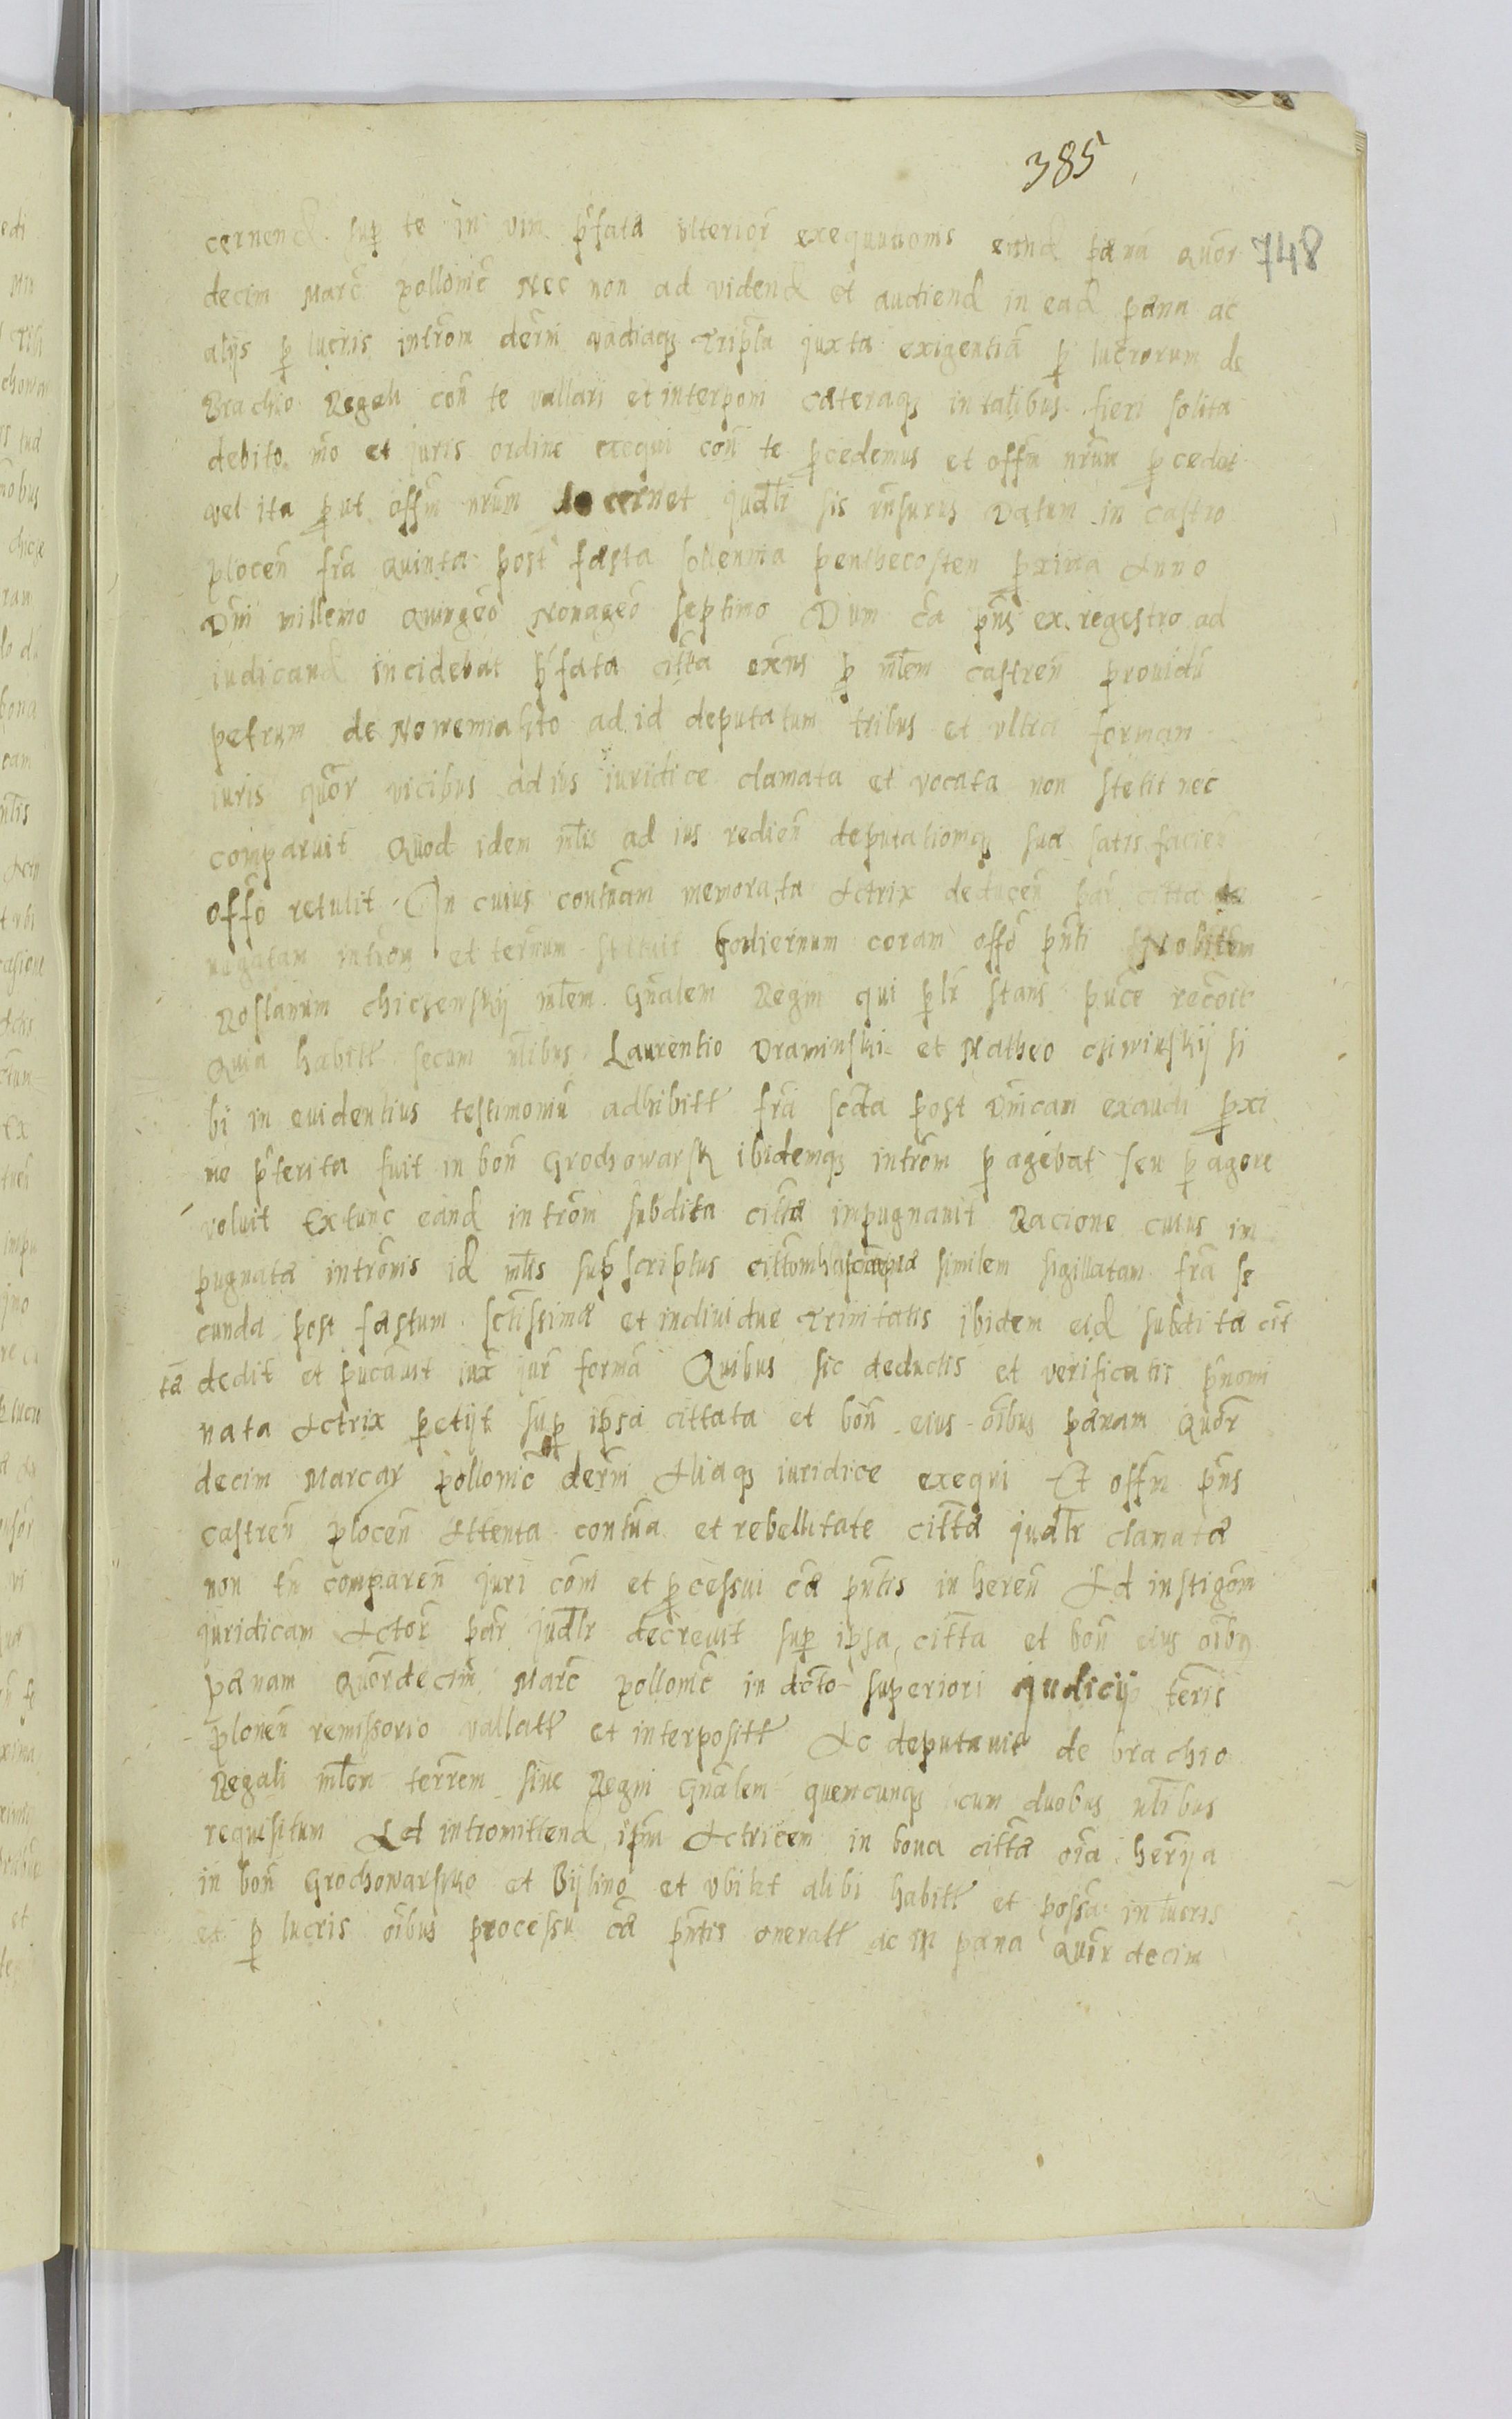 385
748
cernend sup te in vim p̃fatã vlterior̃ exequutionis eand pæna Quor
decim Marc̃ pollonic̃ Nec non ad vidend et audiend in ead pæna ac
alijs p̱ lucris introm̃ derm̃ vadiaqꝫ Tripla juxta exigentiã p̱ lucrorum de
Brachio Regali con̄ te vallari et interponi cæteraqꝫ in talibus fieri solita
debito mo et juris ordine exequi con̄ te p̱cedemus et off̃m nr̃um p̱cedet
vel ita p̱ut off̃m nr̃um decernet judlr sis rn̄surus Datum in castro
plocen̄ fr̃a Quinta post fæsta sollennia penthecosten p̱xima Anno
Dni millemo Quingẽo Nonagẽo septimo Dum cã pñs ex regestro ad
iudicand incidebat p̃fata citta ex̃ns p̱ mlem castren̄ prouidũ
petrum de Nowemiasto ad id deputatum tribus et vltra forman
iuris quõr vicibus ad ius iuridice clamata et vocata non stetit nec
comparuit Quod idem mlis ad ius redien̄ deputationiqꝫ suæ satis facien̄
off̃o retulit In cuius contuam memorata Actrix deducen̄ par̃ citta
nugatam introm̃ et ternum statuit hodiernum coram off̃o pñti Nobilem
Roslanum chiczewskij mlem Gñalem Regni qui p̱lr stans pũce recõtt
Quia habitt secum nlibus Laurentio Draminski et Matheo chiwinskij si
bi in euidentius testimoniũ adhibitt fr̃a scda post Dnicam exaudi p̱xi
me p̃terita fuit in bon̄ Grochowarsk ibidemqꝫ introm̃ p̱agebat seu p̱agere
voluit Extunc eand introm̃ subdita cittæ impugnauit Racione cuius im
pugnatæ intromis id mlis sup̃scriptus similem sigillatam fr̃a se
cunda post fæstum sctissimæ et indiuidue Trinitatis ibidem eid subditæ cit
tæ dedit et pucauit iux̃ jur̃ formã Quibus sic deductis et verificatis p̃nomi
nata Actrix petijt sup̱ ipsa cittata et bon̄ eius õibus pænam Quor
decim Marcar̃ pollonic̃ derm̃ Aliaqꝫ iuridice exequi Et off̃m pñs
castren̄ plocen̄ Attenta contua et rebellitate cittæ judlr clamatæ
non tñ comparen̄ juri com̃ et p̱cessui cæ pñtis inheren̄ Ad instigom̃
juridicam Actor̃ par̃ judlr decreuit sup̱ ipsa citta et bon̄ eius õibꝫ
pænam Quordecim̃ Marc̃ pollonic̃ in dcto superiori judicij terris
plonen̄ remissorio vallatt et interpositt Ac deputauit de brachio
Regali mlem terrem siue Regni Gñalem quemcunqꝫ cum duobus nlibus
requisitum Ad intromittend ipm Actricem in bona cittæ oĩa herrja
in bon̄ Grochowarsko et Bijlino et vbilt alibi habitt et possa in lucris
et p̱ lucris õibus processu cæ pñtis oneratt ac in pæna Quor decim